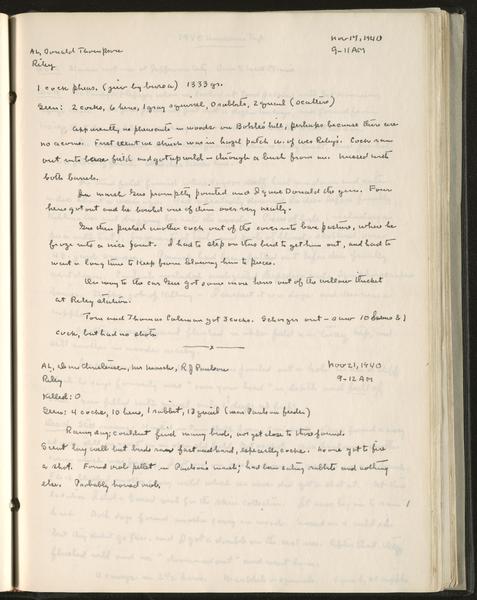 Nov 17, 1940
AL, Donald Thompson
9-11 AM
Riley
1 cock pheas. (given by bureau) 1333 gr.
Seen: 2 cocks, 6 hens, 1 gray squirrel, 0 rabbits, 2 quail (scatters)
Apparently no pheasants in woods on Bohlee's hill, perhaps because there are
no acorns. First scent we struck was in hazel patch w. of Riley's. Cock ran
out into field and got up wild - through a bush from me. Missed with
both barrels.
In marsh Gus promptly pointed and I gave Donald the gun. Four
hens got out and he bowled one of them over very neatly.
Gus then pushed another cock out of the cover into bare pasture, where he
froze into a nice point. I had to step on this bird to get him out, and had to
wait a long time to keep from blowing him to pieces.
On way to the car Gus got some more hens out of the willow thicket
at Riley station.
Tom and Thomas Coleman got 3 cocks. Schorger out - saw 10 hens & 1
cock, but had no shots
x
AL, Dan Christensen, R J Paulson
Nov 21, 1940
Riley
9-12 AM
Killed: 0
Seen: 4 cocks, 10 hens, 1 rabbit, 17 quail (near Paulson feeder)
Rainy day; couldn't find many birds, nor get close to those found.
Scent lay well but birds ran fast and hard, especially cocks. No one got to fire
a shot. Found owl pellet in Paulson's marsh; had been eating rabbits and nothing
else. Probably horned owl.